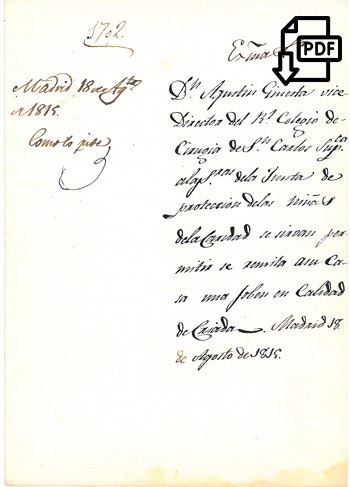 1702.
Exma Sra
Madrid 18 de Agto
de 1815.
Como lo pide
Dn Agustin Ginesta vice
Director del Rl Colegio de
Cirugia de Sn Carlos Supca
a la Junta de
proteccion de las niñas
de la Caridad se sirvan per
mitir se remita a su Ca
sa una joben en Calidad
de Criada. Madrid 18
de Agosto de 1815.
PDF